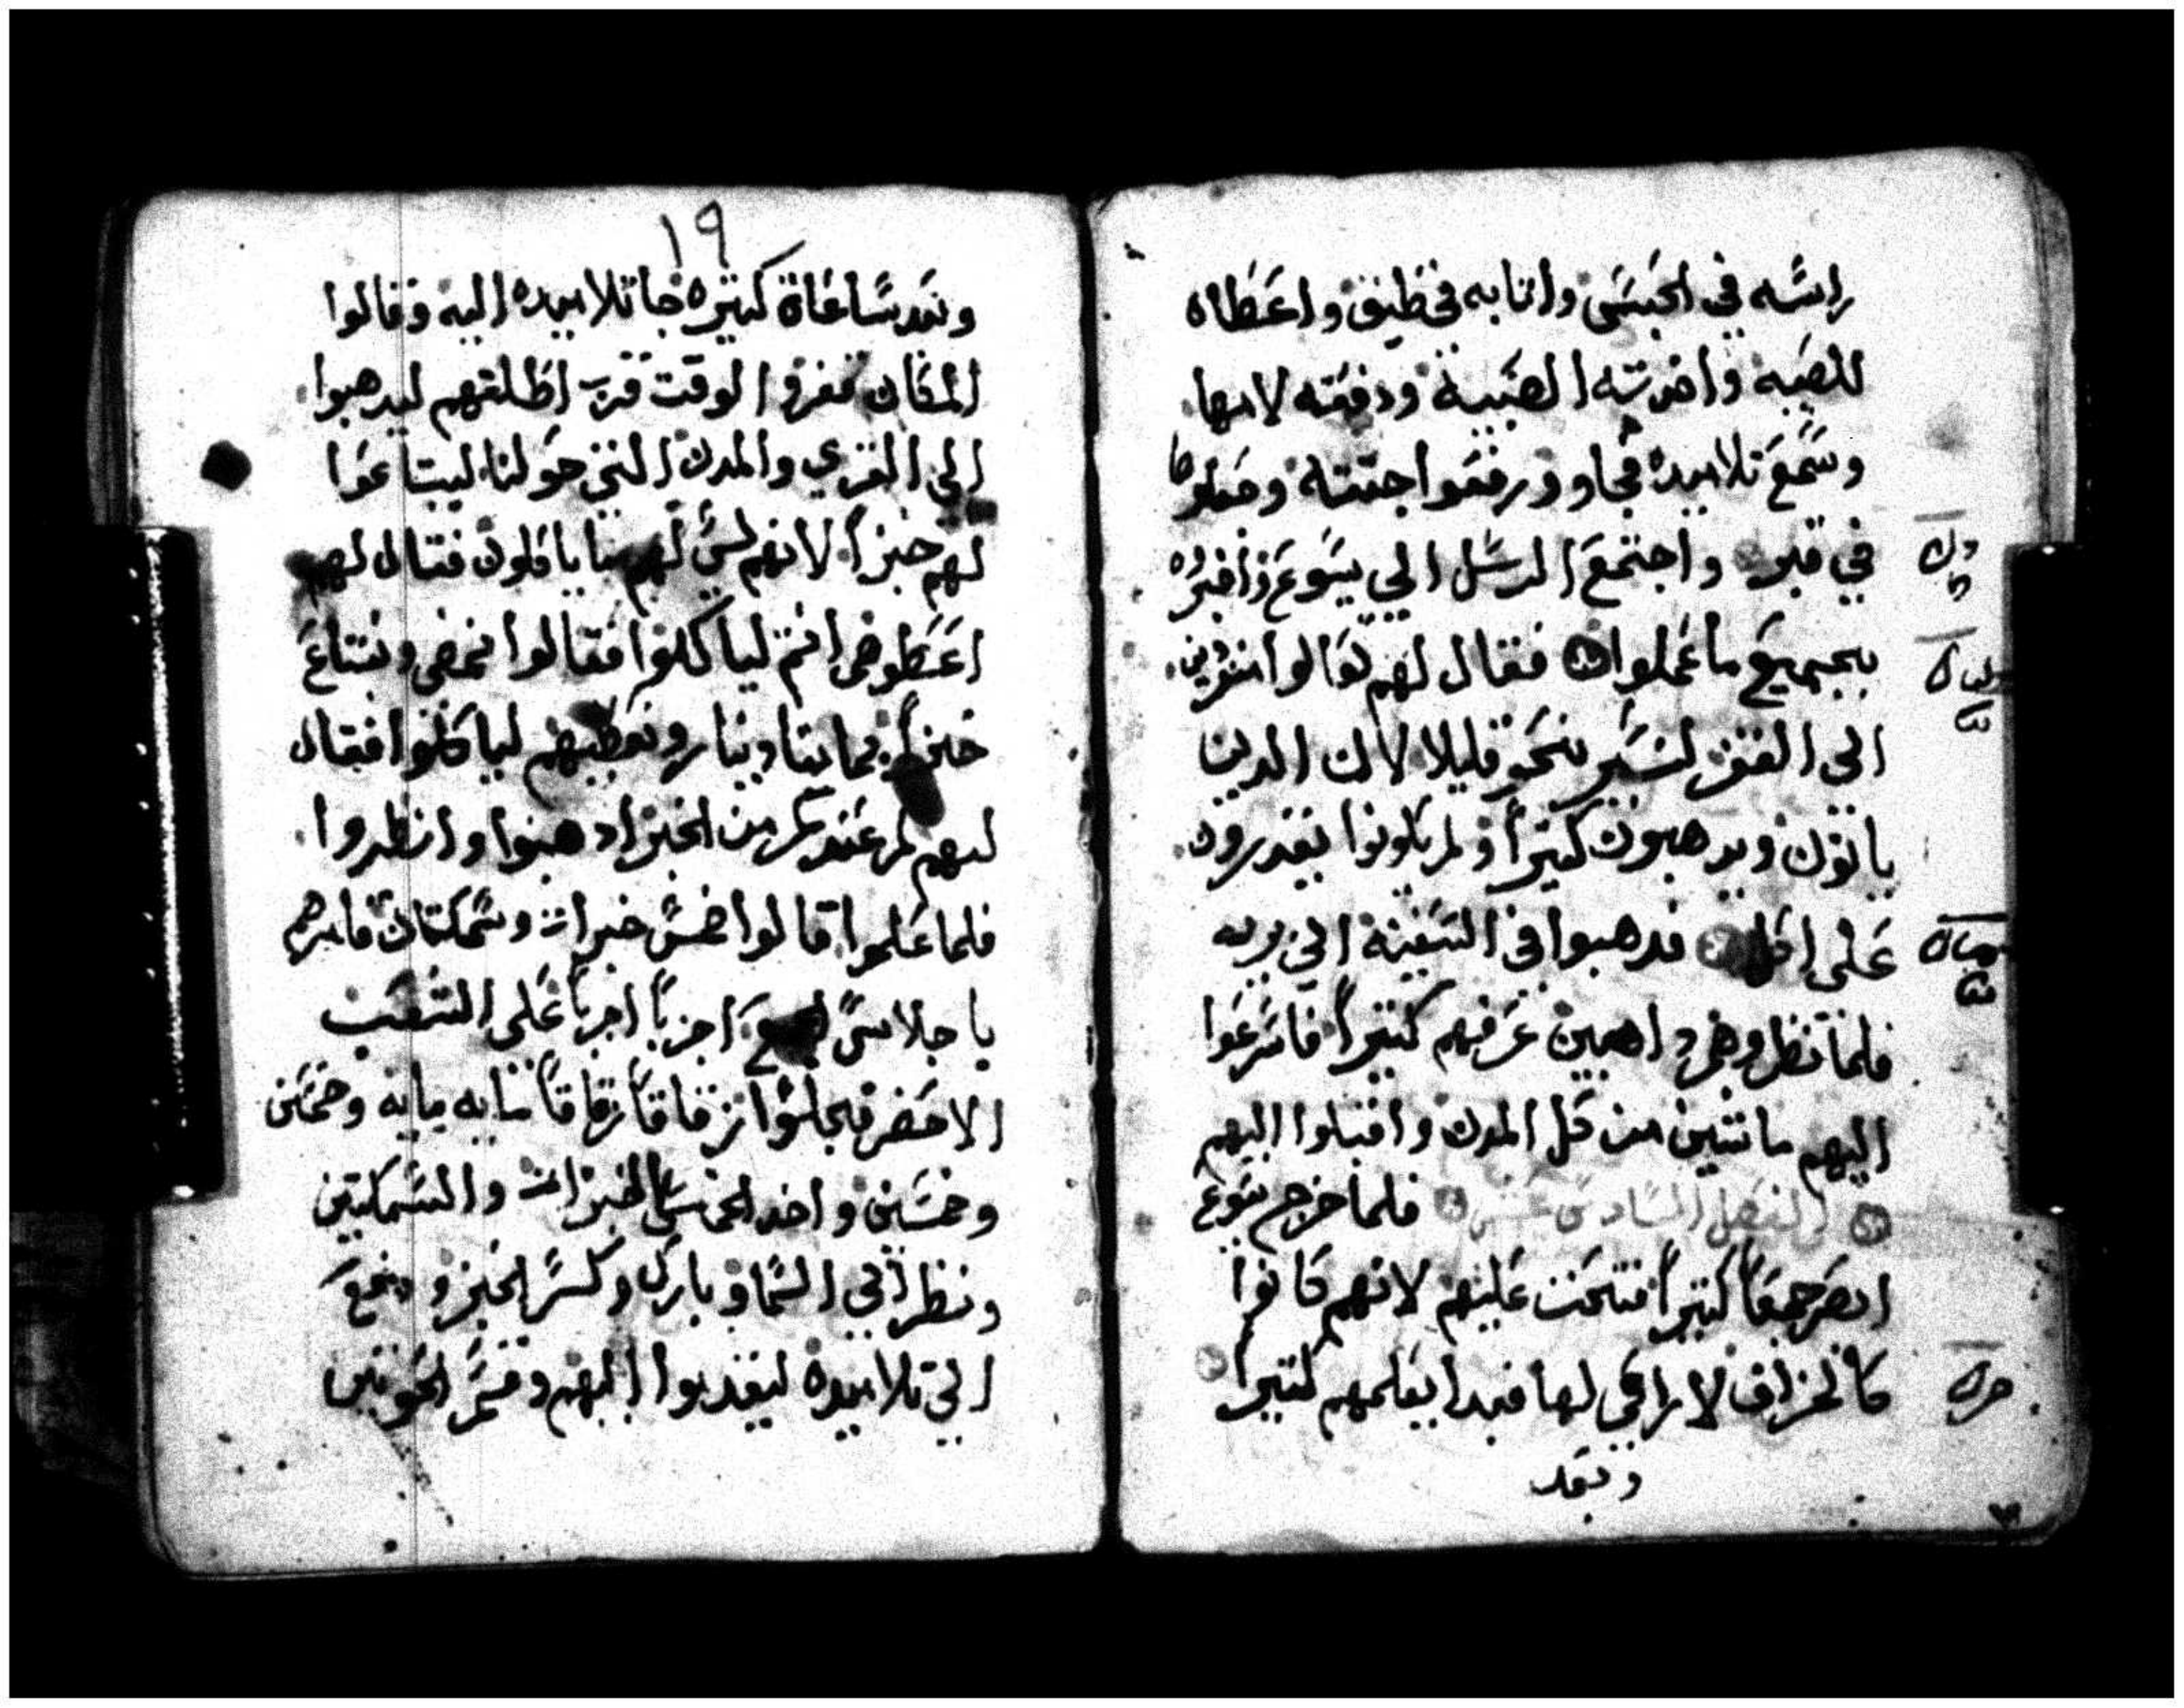 راسه في الحبس واتا به في طيفن واعطاه
للصبيه واخدته الصبية ودفعته لامها
وسمع تلاميده فجاوو ورفعوا جتته وجعلوها
في قبر واجتمع الرسل الي يسوع واخبروه
بجميع ما عملوا فقال لهم تعالوا منفردين
الي القفر لنستريحو قليلا لان الدين
ياتون ويدهبون كتيراً ولم يكونوا يقدرون
على اكل فدهبوا في السفينة الي بريه
فلما نظروهم داهبين عرفهم كتيراً فاسرعوا
اليهم ماشين من كل المدن واقبلوا اليهم
الفصل السادس عشر فلما خرج يسوع
ابصر جمعاً كتيراً فتحنن عليهم لانهم كانوا
كالخراف لا راعي لها فبدا يعلمهم كتيرا
وبعد
١٩
وبعد ساعاة كتيره جا تلاميده اليه وقالوا
المكان قفر و الوقت قرب اطلقهم ليدهبوا
الي القري والمدن التي حولنا ليبتاعوا
لهم خبزاً لانهم ليس لهم ما ياكلون فقال لهم
اعطوهم انتم لياكلوا فقالوا نمضي ونبتاع
خبزاً بمايتا دينار ونعطيهم لياكلوا فقال
لهم كم عندكم من الخبز ادهبوا وانظروا
فلما علموا قالوا خمس خبزات وسمكتان فامرهم
باجلاس الجمع احزباً احزباً على العشب
الاخضر فجلسوا زقاقاً زقاقاً مايه مايه وخمسين
وخمسين واخد الخمس الخبزات والسمكتين
ونظر الي السما وبارك وكسر الخبز ودفع
الي تلاميده ليقدموا اليهم وقسم الحوتين